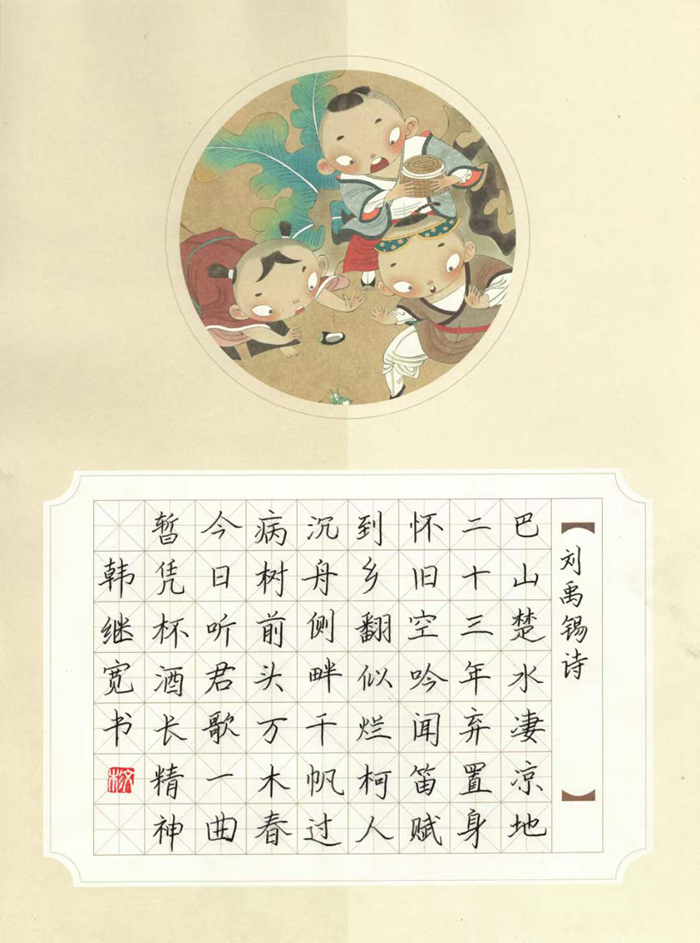 【刘禹锡诗】
巴山楚水凄凉地
二十三年弃置身
怀旧空吟闻笛赋
到乡翻似烂柯人
沉舟侧畔千帆过
病树前头万木春
今日听君歌一曲
暂凭杯酒长精神
韩继宽书